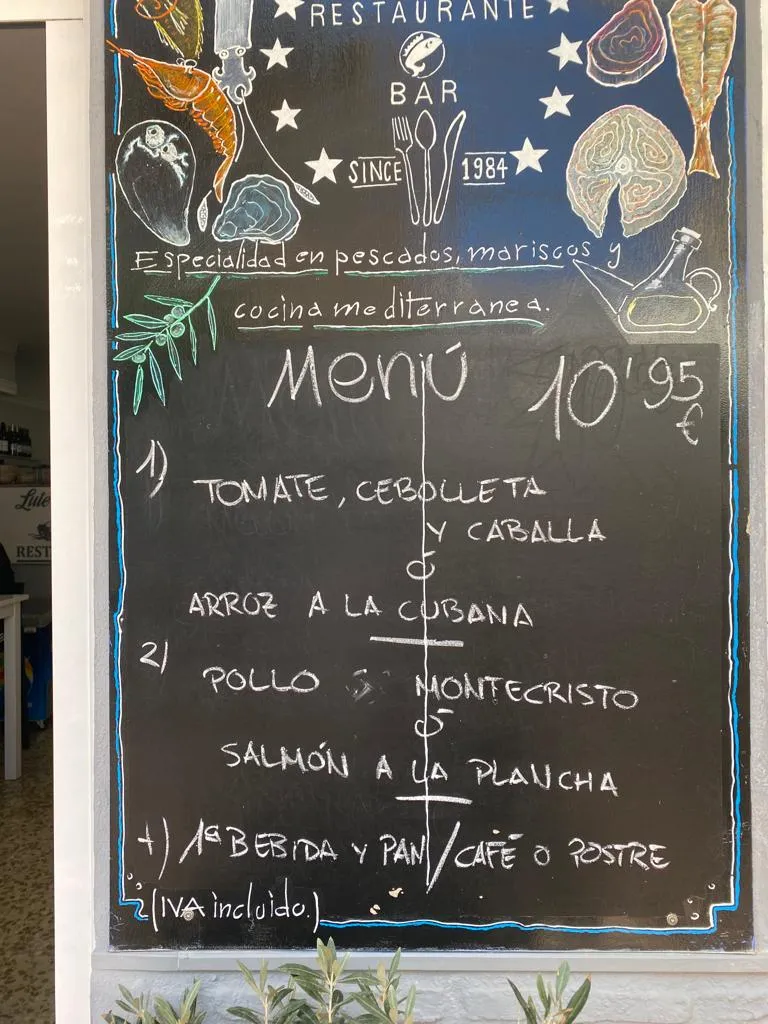 RESTAURANTE
BAR
SINCE 1984
Especialidad en pescados, mariscos y
cocina mediterranea.
Menú 10'95
€
1)
TOMATE, CEBOLLETA
Y CABALLA
ó
ARROZ A LA CUBANA
2)
POLLO MONTECRISTO
ó
SALMÓN A LA PLANCHA
+) 1ª BEBIDA Y PAN/CAFÉ O POSTRE
(IVA incluido.)
REST